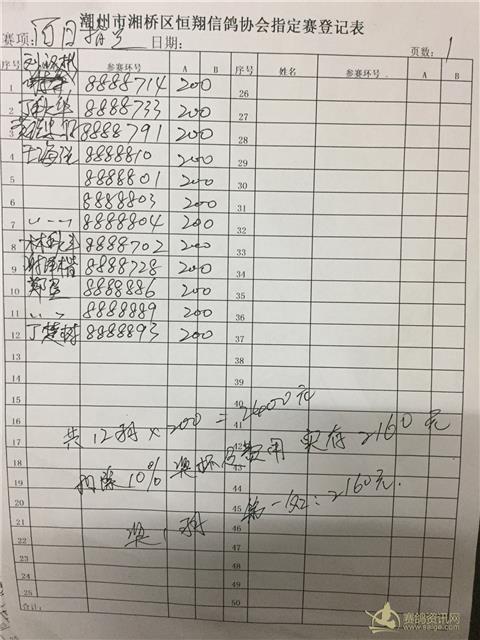 潮州市湘桥区恒翔信鸽协会指定赛登记表
赛项: 百日指定 日期: 页数: 1
序号 参赛环号 A B 序号 姓名 参赛环号 A B
1 8888714 200 26
2 8888733 200 27
3 8888791 200 28
4 8888810 200 29
5 8888801 200 30
6 8888803 200 31
7 8888804 200 32
8 8888702 200 33
9 8888728 200 34
10 8888886 200 35
11 8888889 200 36
12 丁楚树 8888893 200 37
13 38
14 39
15 40
16 41
17 42
18 43
19 44
20 45
21 46
22 47
23 48
24 49
25 50
共12羽×200=2400元
扣除10%奖杯及费用 实存2160元
奖1羽 第一名:2160元.
合计:
赛鸽资讯网
www.saige.com